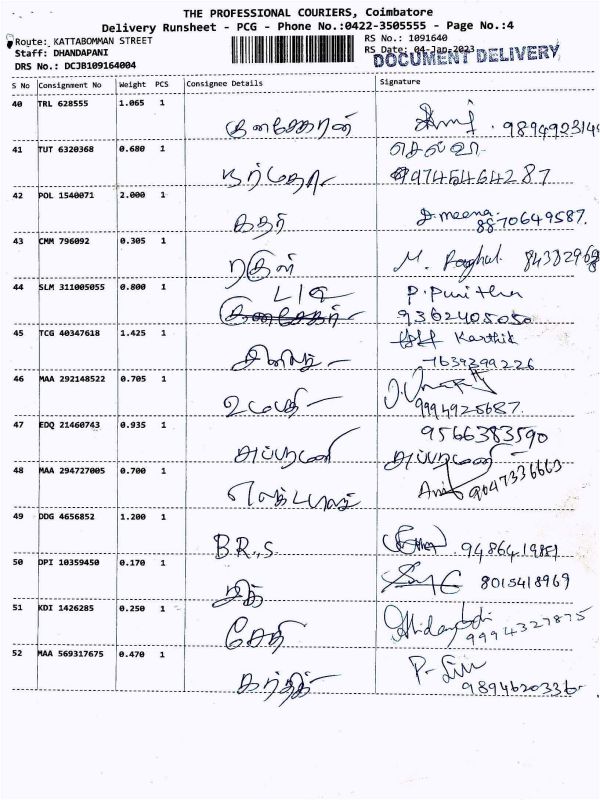 THE PROFESSIONAL COURIERS, Coimbatore
Delivery Runsheet - PCG - Phone No.:0422-3505555 - Page No.:4
Route: KATTABOMMAN STREET
RS No.: 1091640
Staff: DHANDAPANI
RS Date: 04-Jan-2023
DOCUMENT DELIVERY
DRS No.: DCJB109164004
S No Consignment No Weight PCS Consignee Details Signature
40 TRL 628555 1.065 1
குணசேகரன்
41 TUT 6320368 0.680 1 செல்வா
9974564287
42 POL 1540071 2.000 1 D. meena.
கதிர் 8870649587.
43 CMM 796092 0.305 1
ரகுல் M. Raghul.
44 SLM 311005055 0.800 1 LIC P. Punitha
9362405050
45 TCG 40347618 1.425 1 Karthik
7639399226
46 MAA 292148522 0.705 1
உமாபதி 9994925687.
47 EDQ 21460743 0.935 1 9566383590
48 MAA 294727005 0.700 1
9047336663
49 DDG 4656852 1.200 1
B.R.S. 9486419881
50 DPI 10359450 0.170 1
8015418969
51 KDI 1426285 0.250 1
9994327875
52 MAA 569317675 0.470 1
கார்த்திக் 9894620336